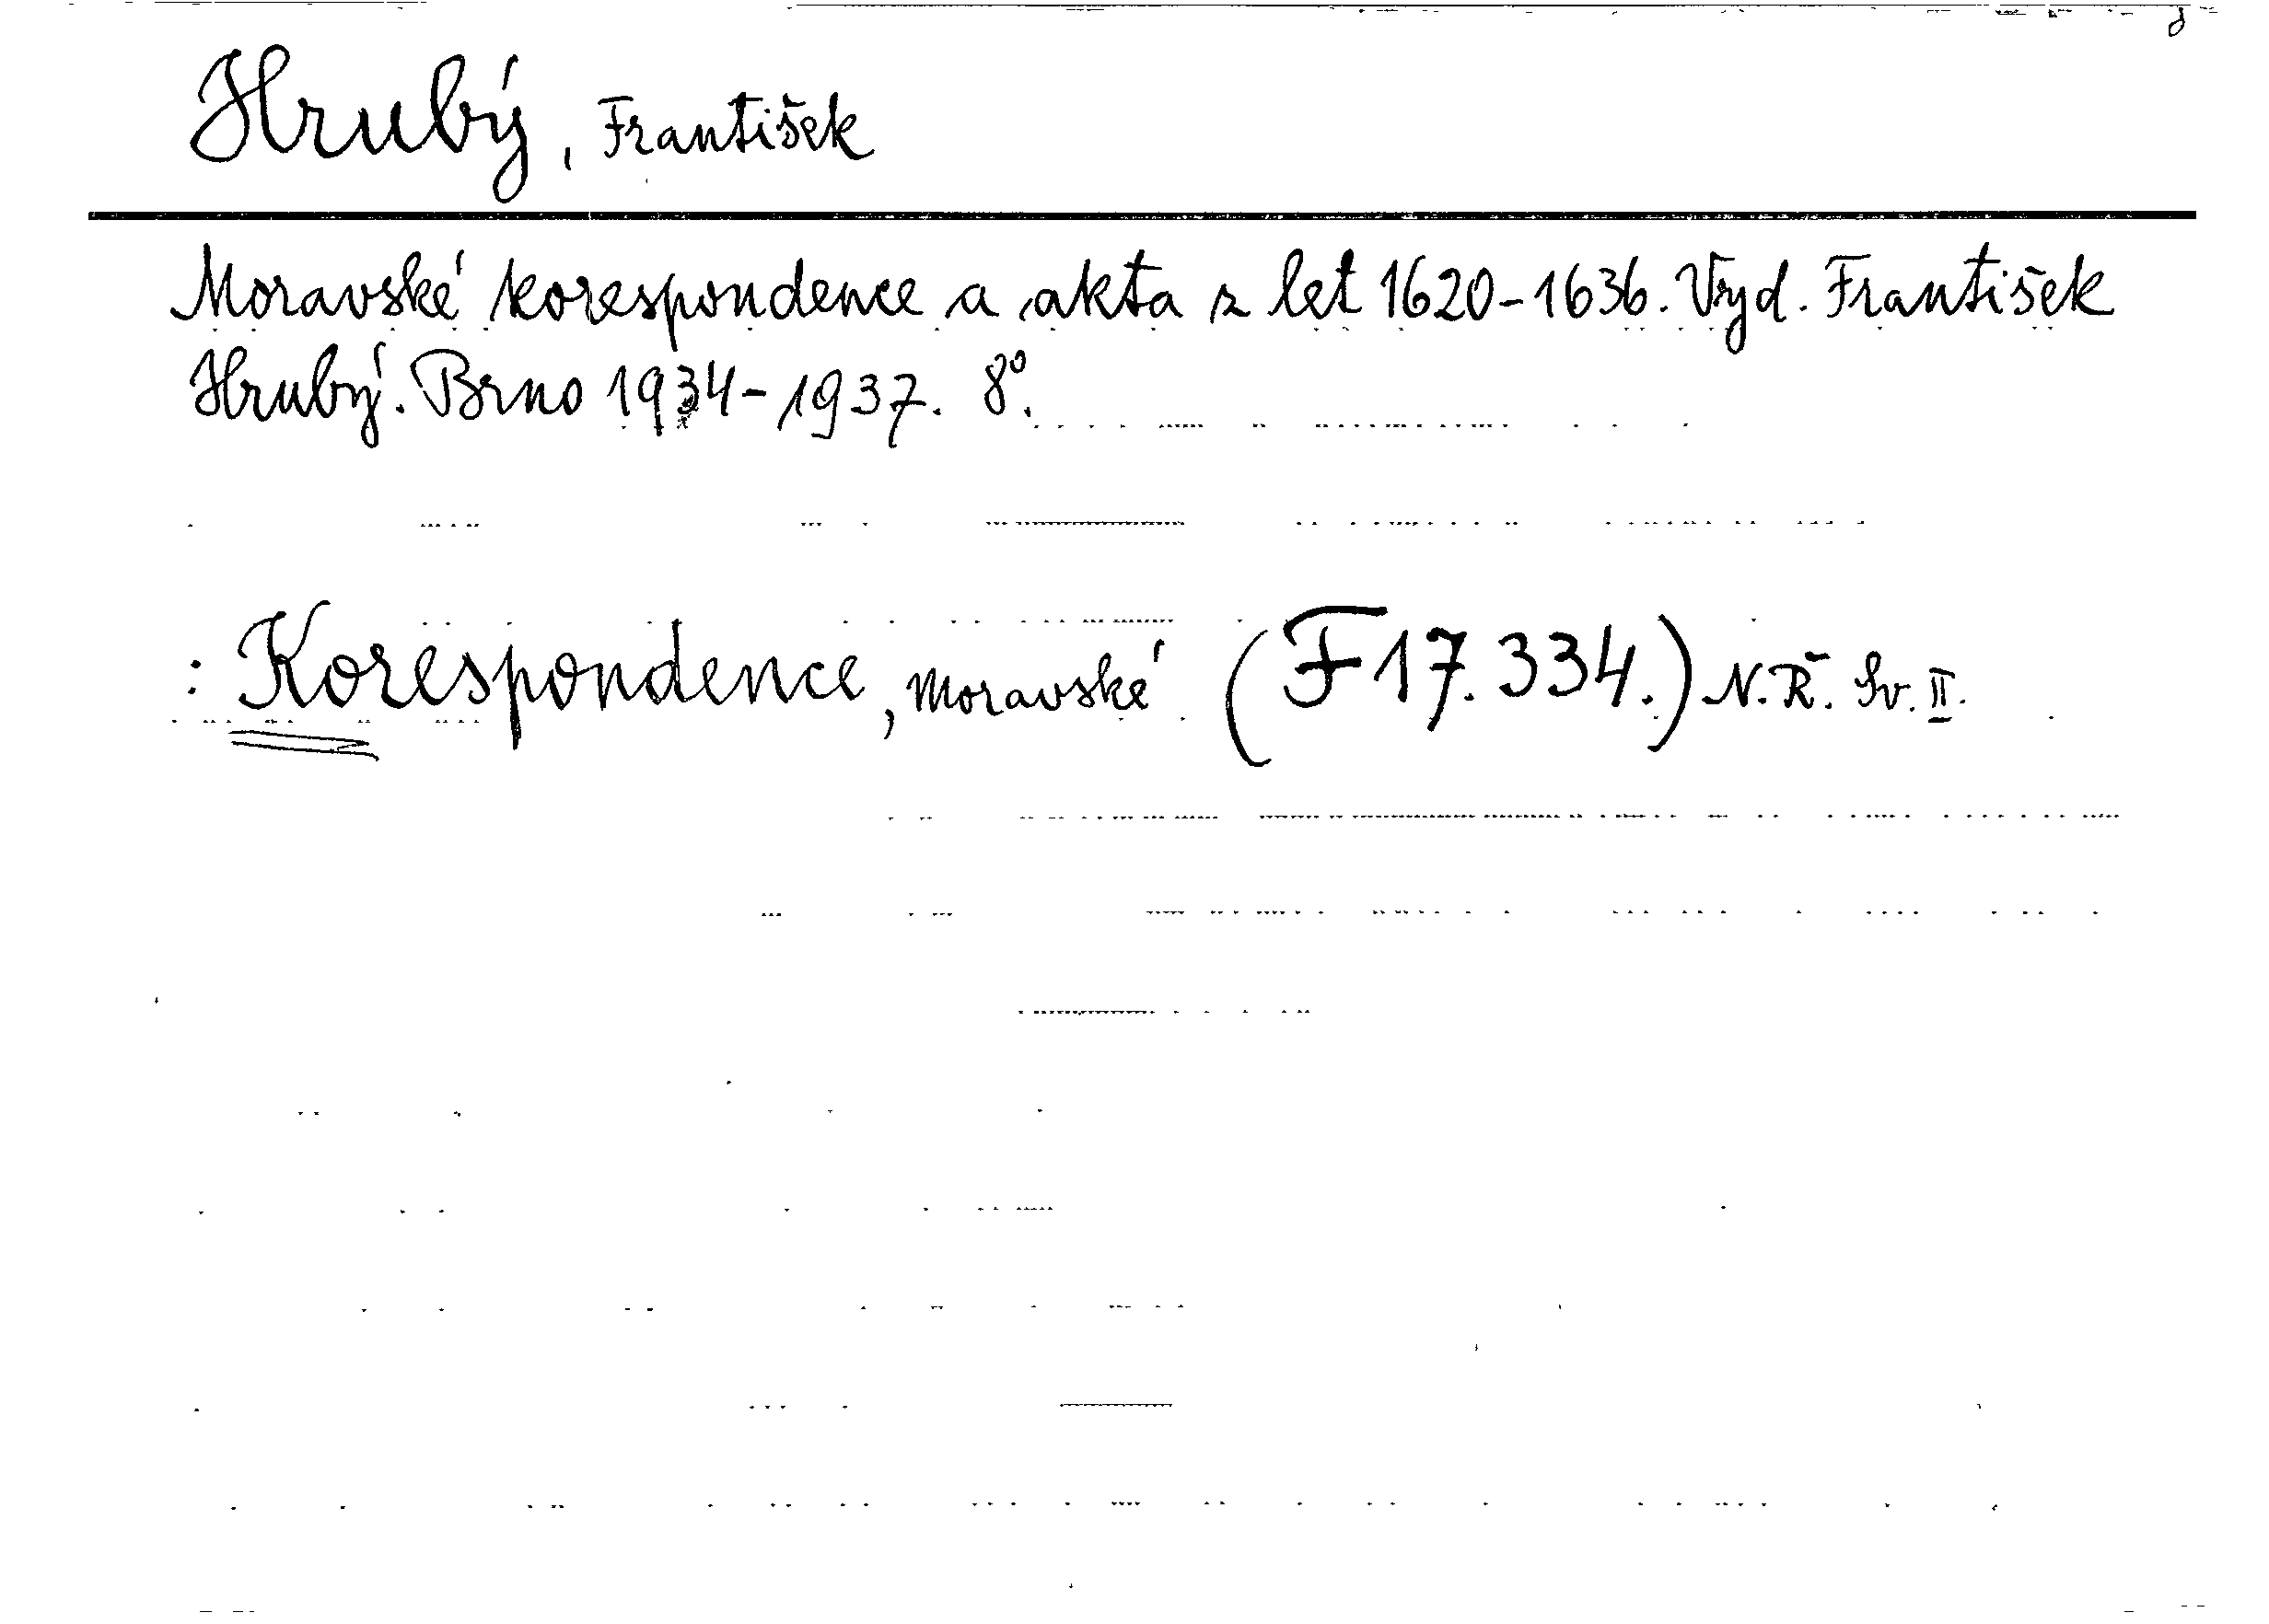 Hrubý, František
Moravské korespondence a akta z let 1620-1636. Vyd. František
Hrubý. Brno 1934-1937. 8°.
: Korespondence, Moravské (F17.334.) N.Ř. Sv. II.